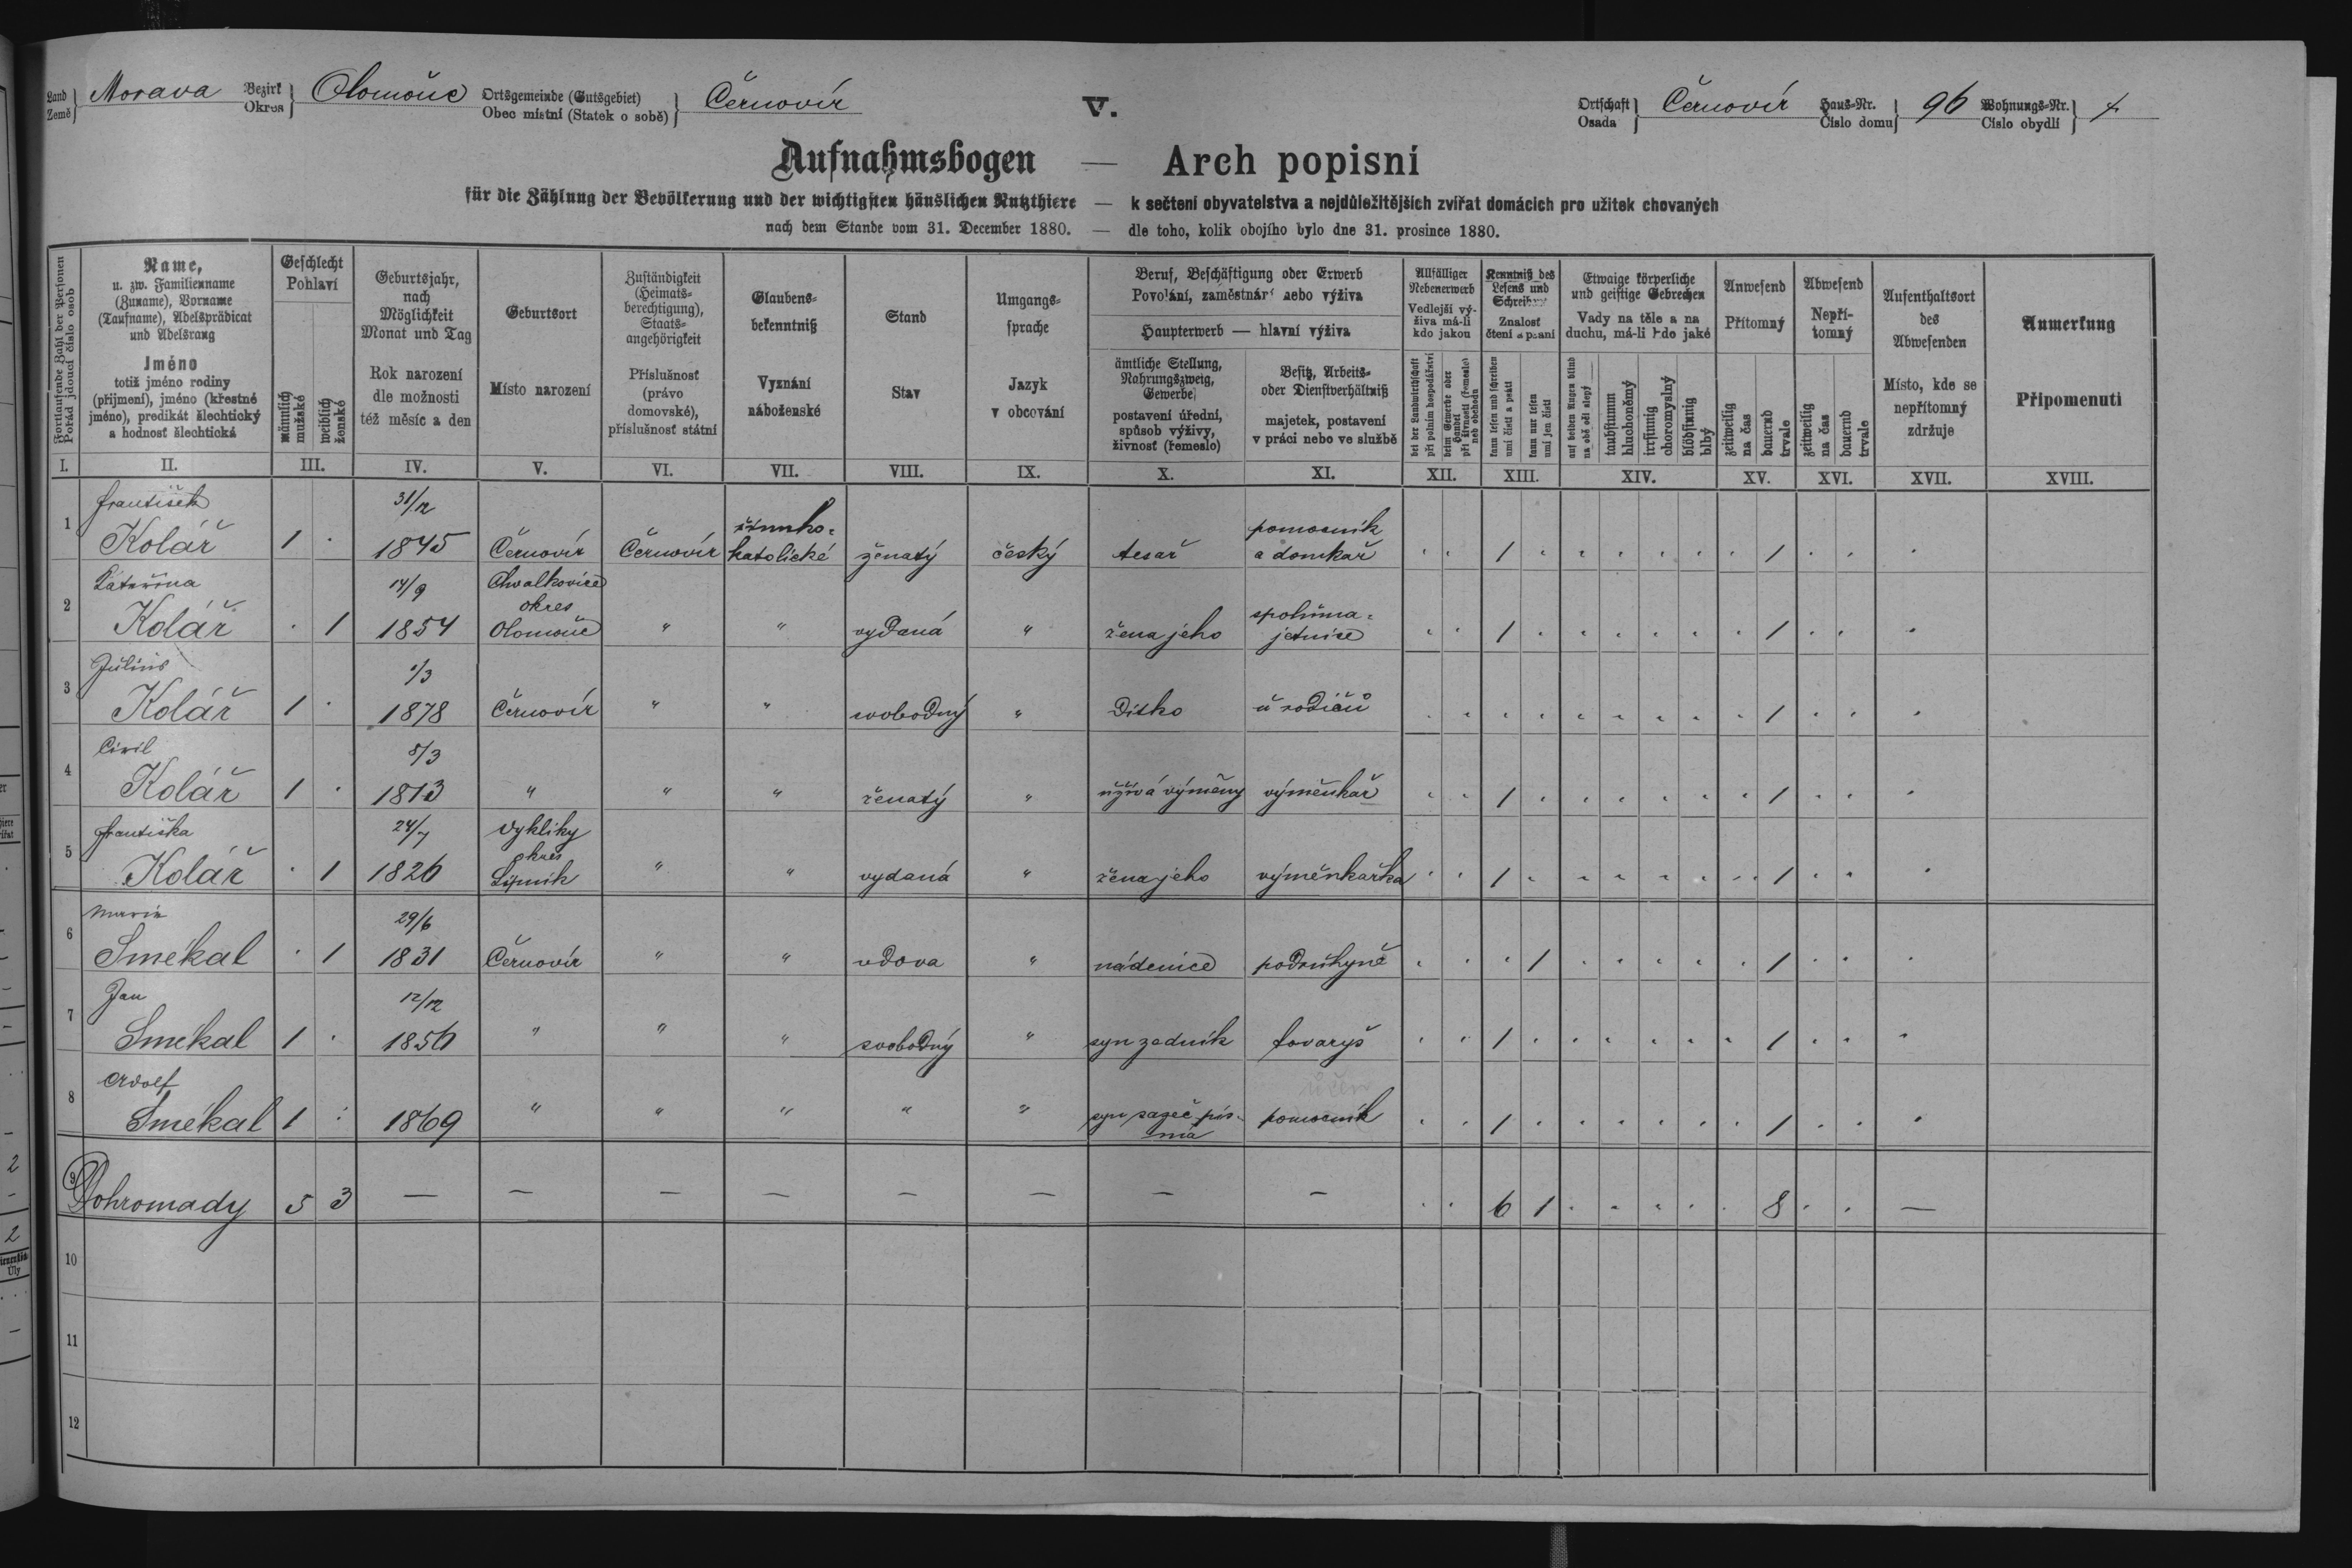 Land Země } Morava Bezirk Okres } Olomouc Ortsgemeinde (Gutsgebiet) Obec místní (Statek o sobě) } Černovír
V.
Ortschaft Osada } Černovír Haus-Nr. Číslo domu } 96 Wohnungs-Nr. Číslo obydlí }
Aufnahmsbogen — Arch popisní
für die Zählung der Bevölkerung und der wichtigsten häuslichen Nutzthiere — k sečtení obyvatelstva a nejdůležitějších zvířat domácích pro užitek chovaných
nach dem Stande vom 31. December 1880. — dle toho, kolik obojího bylo dne 31. prosince 1880.
Fortlaufende Zahl der Personen
Pořád jdoucí číslo osob
Name,
u. zw. Familienname
(Zuname), Vorname
(Taufname), Adelsprädicat
und Adelsrang
Jméno
totiž jméno rodiny
(příjmení), jméno (křestné
jméno), predikát šlechtický
a hodnosť šlechtická
Geschlecht
Pohlaví
männlich
mužské
weiblich
ženské
Geburtsjahr,
nach
Möglichkeit
Monat und Tag
Rok narození
dle možnosti
též měsíc a den
Geburtsort
Místo narození
Zuständigkeit
(Heimats-
berechtigung),
Staats-
angehörigkeit
Příslušnosť
(právo
domovské),
příslušnosť státní
Glaubens-
bekenntniß
Vyznání
náboženské
Stand
Stav
Umgangs-
sprache
Jazyk
v obcování
Beruf, Beschäftigung oder Erwerb
Povolání, zaměstnání nebo výživa
Haupterwerb — hlavní výživa
ämtliche Stellung,
Nahrungszweig,
Gewerbe
postavení úřední,
spůsob výživy,
živnosť (řemeslo)
Besitz, Arbeits-
oder Dienstverhältniß
majetek, postavení
v práci nebo ve službě
Allfälliger
Nebenerwerb
Vedlejší vý-
živa má-li
kdo jakou
bei der Landwirthschaft
při polním hospodářství
beim Gewerbe oder
Handel
při živnosti (řemesle)
neb obchodu
Kenntniß des
Lesens und
Schreibens
Znalosť
čtení a psaní
kann lesen und schreiben
umí čísti a psáti
kann nur lesen
umí jen čísti
Etwaige körperliche
und geistige Gebrechen
Vady na těle a na
duchu, má-li kdo jaké
auf beiden Augen blind
na obě oči slepý
taubstumm
hluchoněmý
irrsinnig
choromyslný
blödsinnig
blbý
Anwesend
Přítomný
zeitweilig
na čas
dauernd
trvale
Abwesend
Nepří-
tomný
zeitweilig
na čas
dauernd
trvale
Aufenthaltsort
des
Abwesenden
Místo, kde se
nepřítomný
zdržuje
Anmerkung
Připomenutí
I. II. III. IV. V. VI. VII. VIII. IX. X. XI. XII. XIII. XIV. XV. XVI. XVII. XVIII.
František 31/12 římsko- pomocník
1 Kolář 1 · 1845 Černovír Černovír katolické ženatý český tesař a domkař · · 1 · · · · · · 1 · · ·
Kateřina 14/9 Chvalkovice
okres spoluma-
2 Kolář · 1 1854 Olomouc " " vydaná " žena jeho jetnice · · 1 · · · · · · 1 · · ·
Julius 1/3
3 Kolář 1 · 1878 Černovír " " svobodný " Dítko u rodičů · · · · · · · · · 1 · · ·
Ciril 5/3
4 Kolář 1 · 1813 " " " ženatý " užívá výměny výměnkař · · 1 · · · · · · 1 · · ·
Františka 24/7 Vykliky
okres
5 Kolář · 1 1826 Lipník " " vydaná " žena jeho výměnkařka · · 1 · · · · · · 1 · · ·
Marie 29/6
6 Smékal · 1 1831 Černovír " " vdova " nádenice podruhyně · · · 1 · · · · · 1 · · ·
Jan 12/12
7 Smékal 1 · 1856 " " " svobodný " syn zedník tovaryš · · 1 · · · · · · 1 · · ·
Adolf
8 Smékal 1 · 1869 " " " " " syn sazeč pís- pomocník · · 1 · · · · · · 1 · · ·
ma
9 Dohromady 5 3 — — — — — — — — · · 6 1 · · · · · 8 · · —
10
11
12